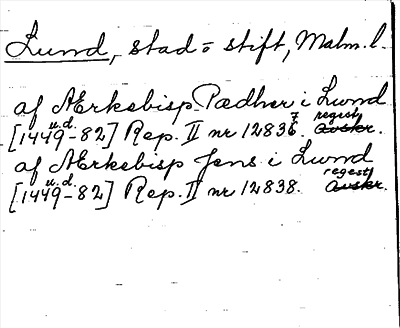 Lund, stad o stift, Malm. l.
af Ærkebisp Pædher i Lund
u. d. 7 regest
[1449-82] Rep. II nr 12836. Avskr.
af Ærkebisp Jens i Lund
u. d. regest
[1449-82] Rep. II nr 12838. Avskr.